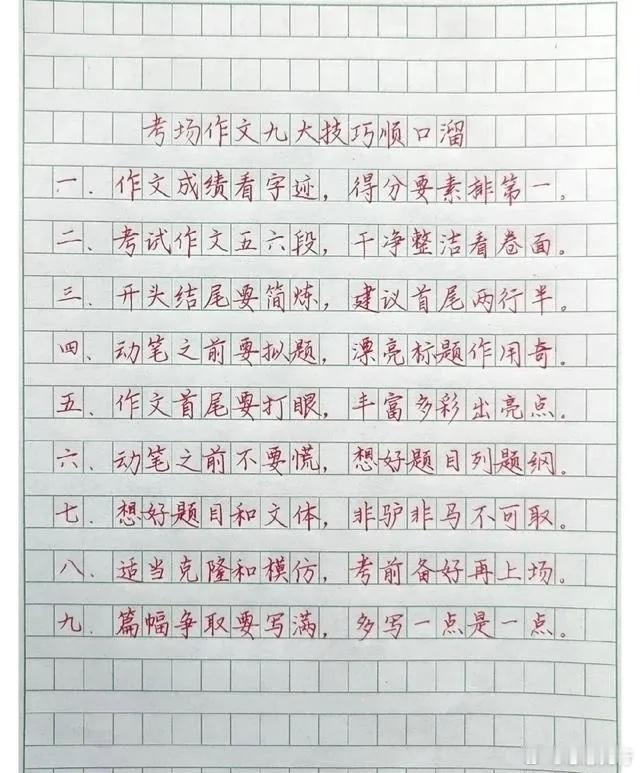 考场作文九大技巧顺口溜
一、作文成绩看字迹，得分要素排第一。
二、考试作文五六段，干净整洁看卷面。
三、开头结尾要简炼，建议首尾两行半。
四、动笔之前要拟题，漂亮标题作用奇。
五、作文首尾要打眼，丰富多彩出亮点。
六、动笔之前不要慌，想好题目列题纲。
七、想好题目和文体，非驴非马不可取。
八、适当克隆和模仿，考前备好再上场。
九、篇幅争取要写满，多写一点是一点。